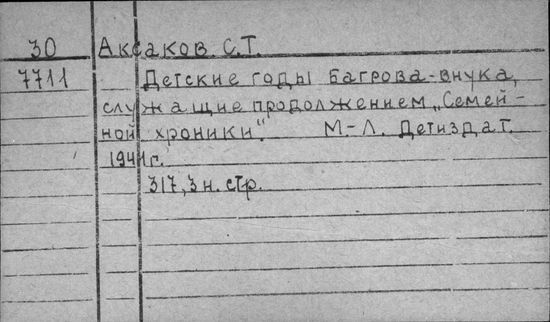 30 Аксаков С.Т.
7711 Детские годы Багрова-внука,
служащие продолжением „Семей-
ной хроники“. М.-Л. Детиздат.
1941г.
317, 3 н. стр.